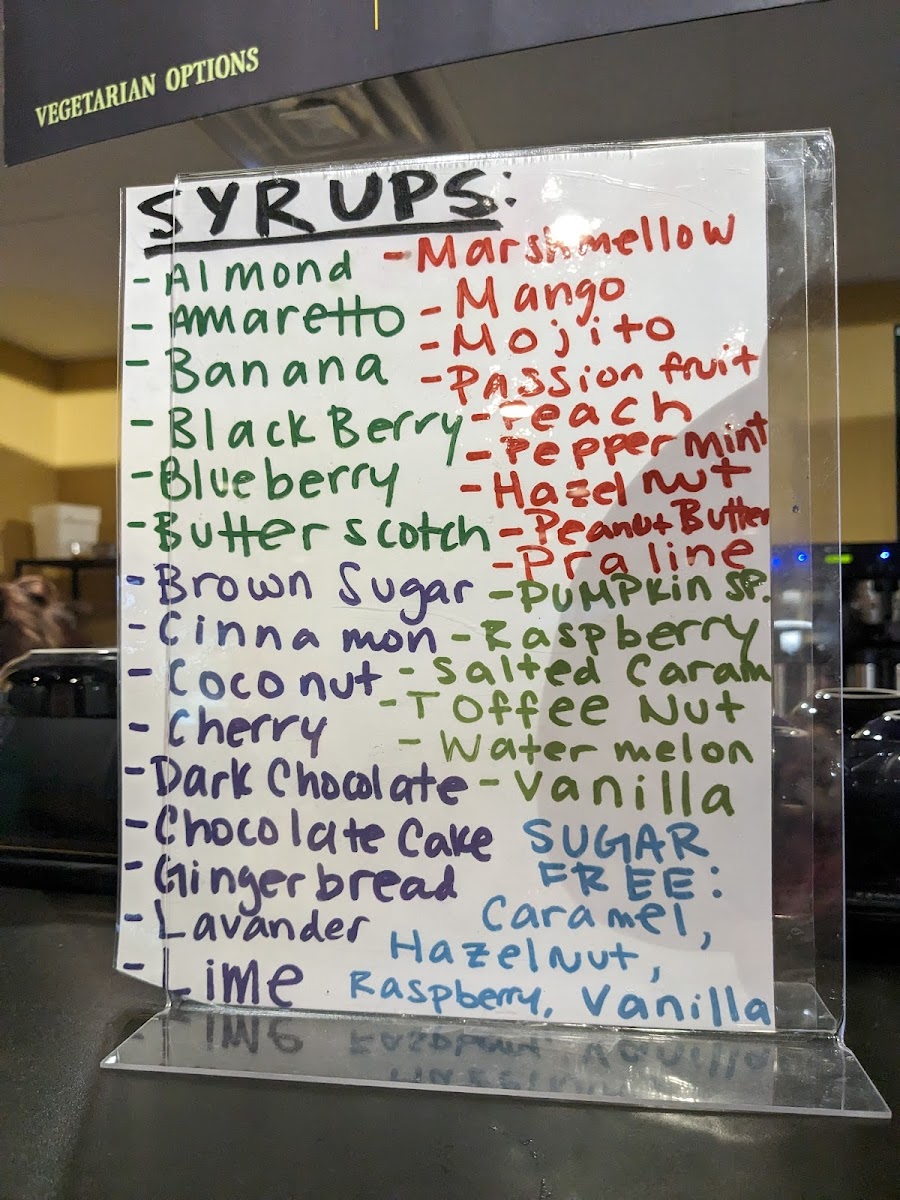 VEGETARIAN OPTIONS
SYRUPS:
- Almond
- Amaretto
- Banana
- BlackBerry
- Blueberry
- Butterscotch
- Brown Sugar
- Cinnamon
- Coconut
- Cherry
- Dark Chocolate
- Chocolate Cake
- Gingerbread
- Lavander
- Lime
- Marshmellow
- Mango
- Mojito
- Passion fruit
- Peach
- Peppermint
- Hazelnut
- Peanut Butter
- Praline
- PUMPKin SP.
- Raspberry
- Salted Caram
- Toffee Nut
- Watermelon
- Vanilla
SUGAR
FREE:
Caramel,
HazelNut,
Raspberry, Vanilla